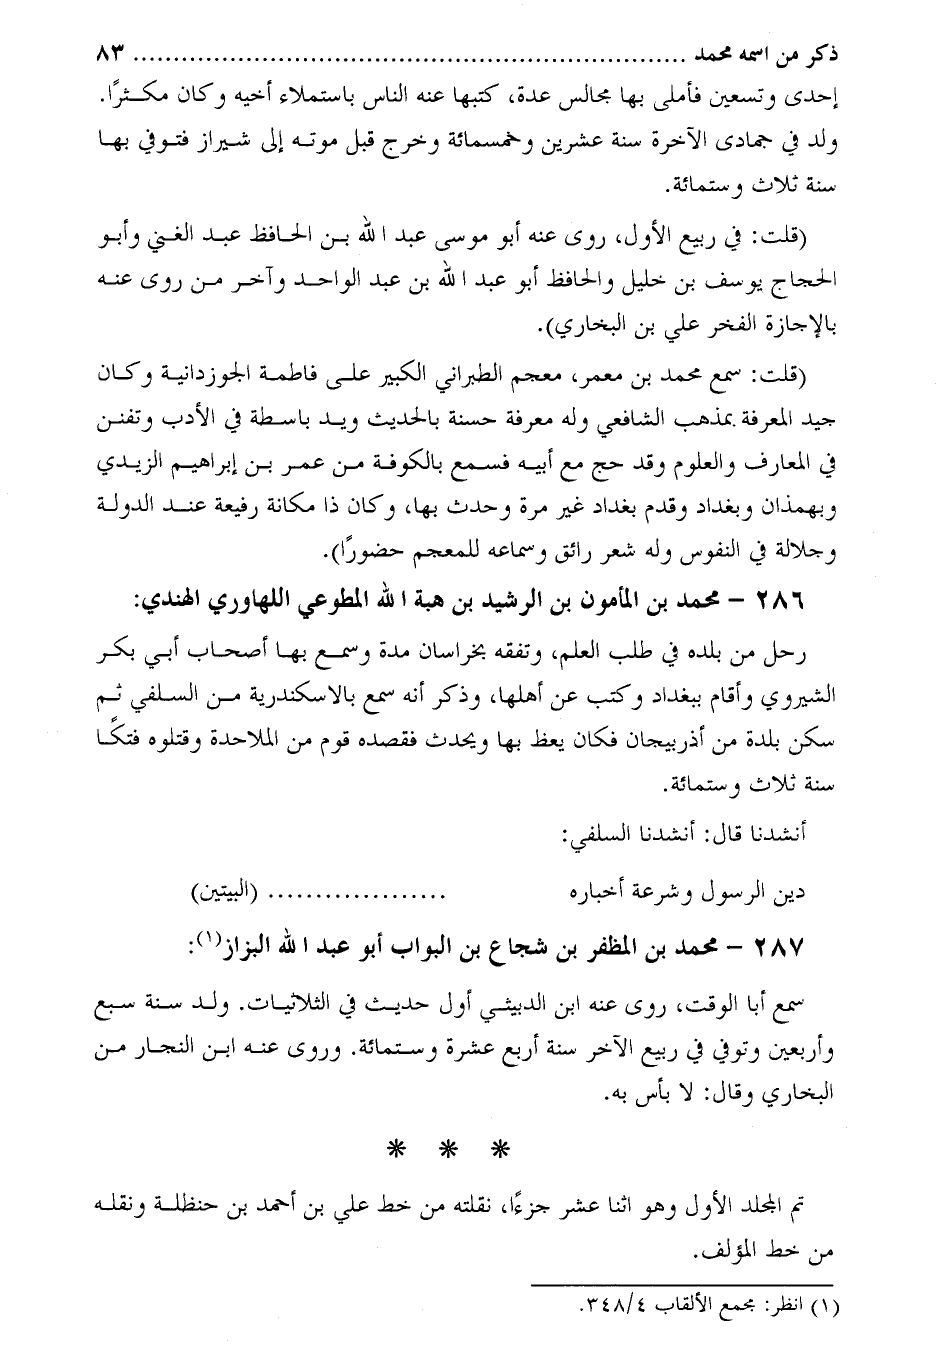 ذكر من اسمه محمد ..................................................................... ٨٣
إحدى وتسعين فأملى بها مجالس عدة، كتبها عنه الناس باستملاء أخيه وكان مكثرًا.
ولد في جمادى الآخرة سنة عشرين وخمسمائة وخرج قبل موته إلى شيراز فتوفي بها
سنة ثلاث وستمائة.
(قلت: في ربيع الأول، روى عنه أبو موسى عبد الله بن الحافظ عبد الغني وأبو
الحجاج يوسف بن خليل والحافظ أبو عبد الله بن عبد الواحد وآخر من روى عنه
بالإجازة الفخر علي بن البخاري).
(قلت: سمع محمد بن معمر، معجم الطبراني الكبير على فاطمة الجوزدانية وكان
جيد المعرفة بمذهب الشافعي وله معرفة حسنة بالحديث ويد باسطة في الأدب وتفنن
في المعارف والعلوم وقد حج مع أبيه فسمع بالكوفة من عمر بن إبراهيم الزيدي
وبهمذان وبغداد وقدم بغداد غير مرة وحدث بها، وكان ذا مكانة رفيعة عند الدولة
وجلالة في النفوس وله شعر رائق وسماعه للمعجم حضورًا).
٢٨٦ – محمد بن المأمون بن الرشيد بن هبة الله المطوعي اللهاوري الهندي:
رحل من بلده في طلب العلم، وتفقه بخراسان مدة وسمع بها أصحاب أبي بكر
الشيروي وأقام ببغداد وكتب عن أهلها، وذكر أنه سمع بالاسكندرية من السلفي ثم
سكن بلدة من أذربيجان فكان يعظ بها ويحدث فقصده قوم من الملاحدة وقتلوه فتكًا
سنة ثلاث وستمائة.
أنشدنا قال: أنشدنا السلفي:
دين الرسول وشرعة أخباره ................... (البيتين)
٢٨٧ – محمد بن المظفر بن شجاع بن البواب أبو عبد الله البزاز(١):
سمع أبا الوقت، روى عنه ابن الدبيثي أول حديث في الثلاثيات. ولد سنة سبع
وأربعين وتوفي في ربيع الآخر سنة أربع عشرة وستمائة. وروى عنه ابن النجار من
البخاري وقال: لا بأس به.
* * *
تم المجلد الأول وهو اثنا عشر جزءًا، نقلته من خط علي بن أحمد بن حنظلة ونقله
من خط المؤلف.
(١) انظر: مجمع الألقاب ٣٤٨/٤.